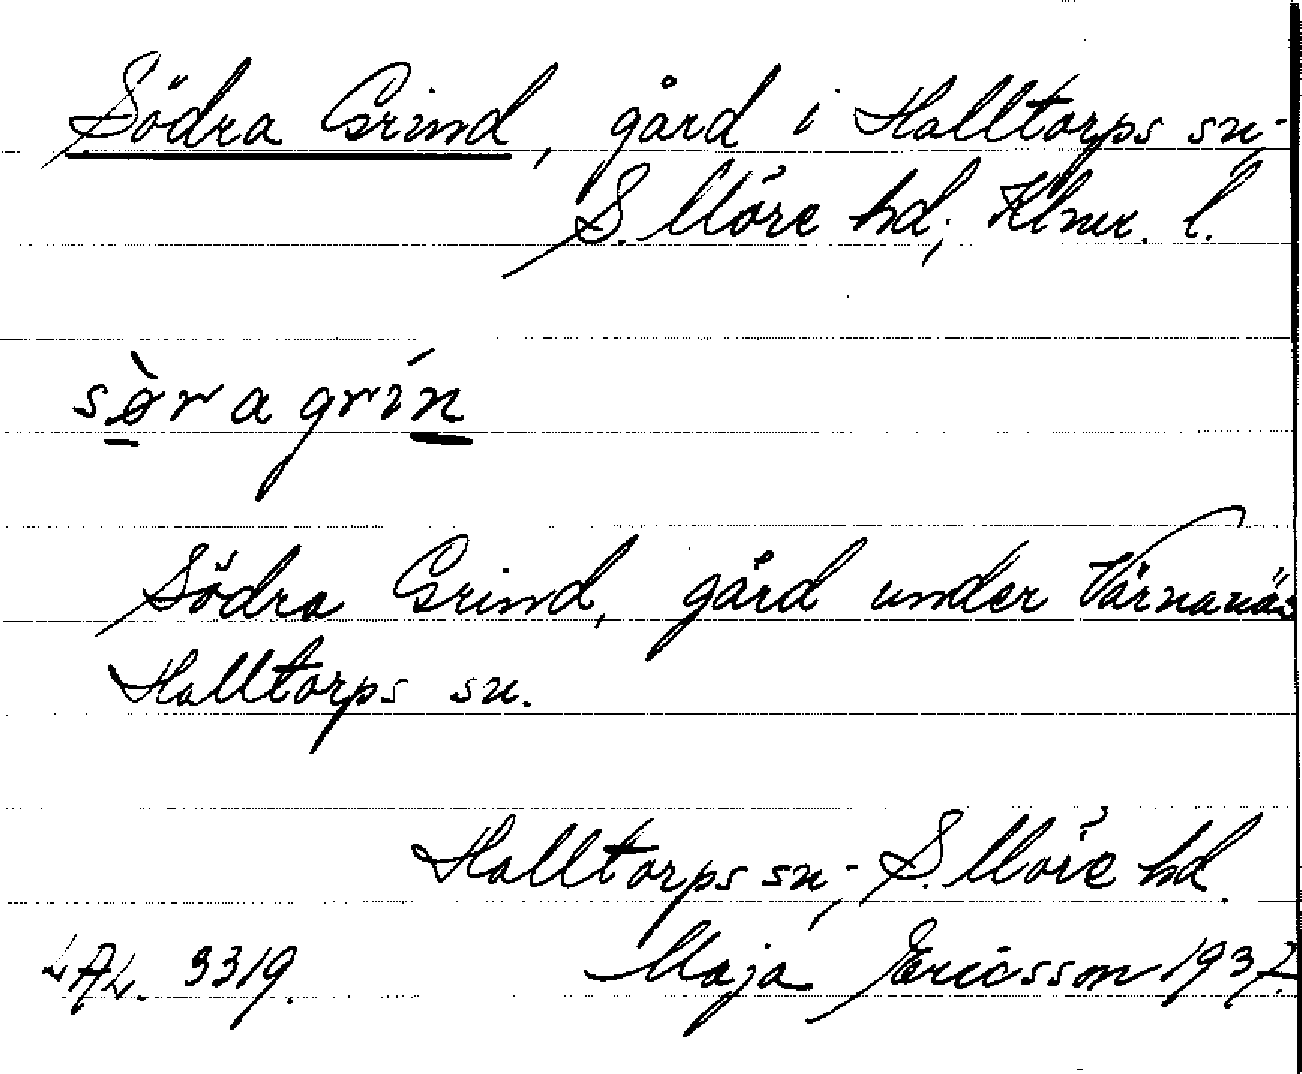 Södra Grind, gård i Halltorps sn.,
S. Möre hd., Klmr. l.
sø̀ra grín
Södra Grind, gård under Värnanäs
Halltorps sn.
Halltorps sn., S. Möre hd.
Maja Ericsson 1937.
LAL. 3319.